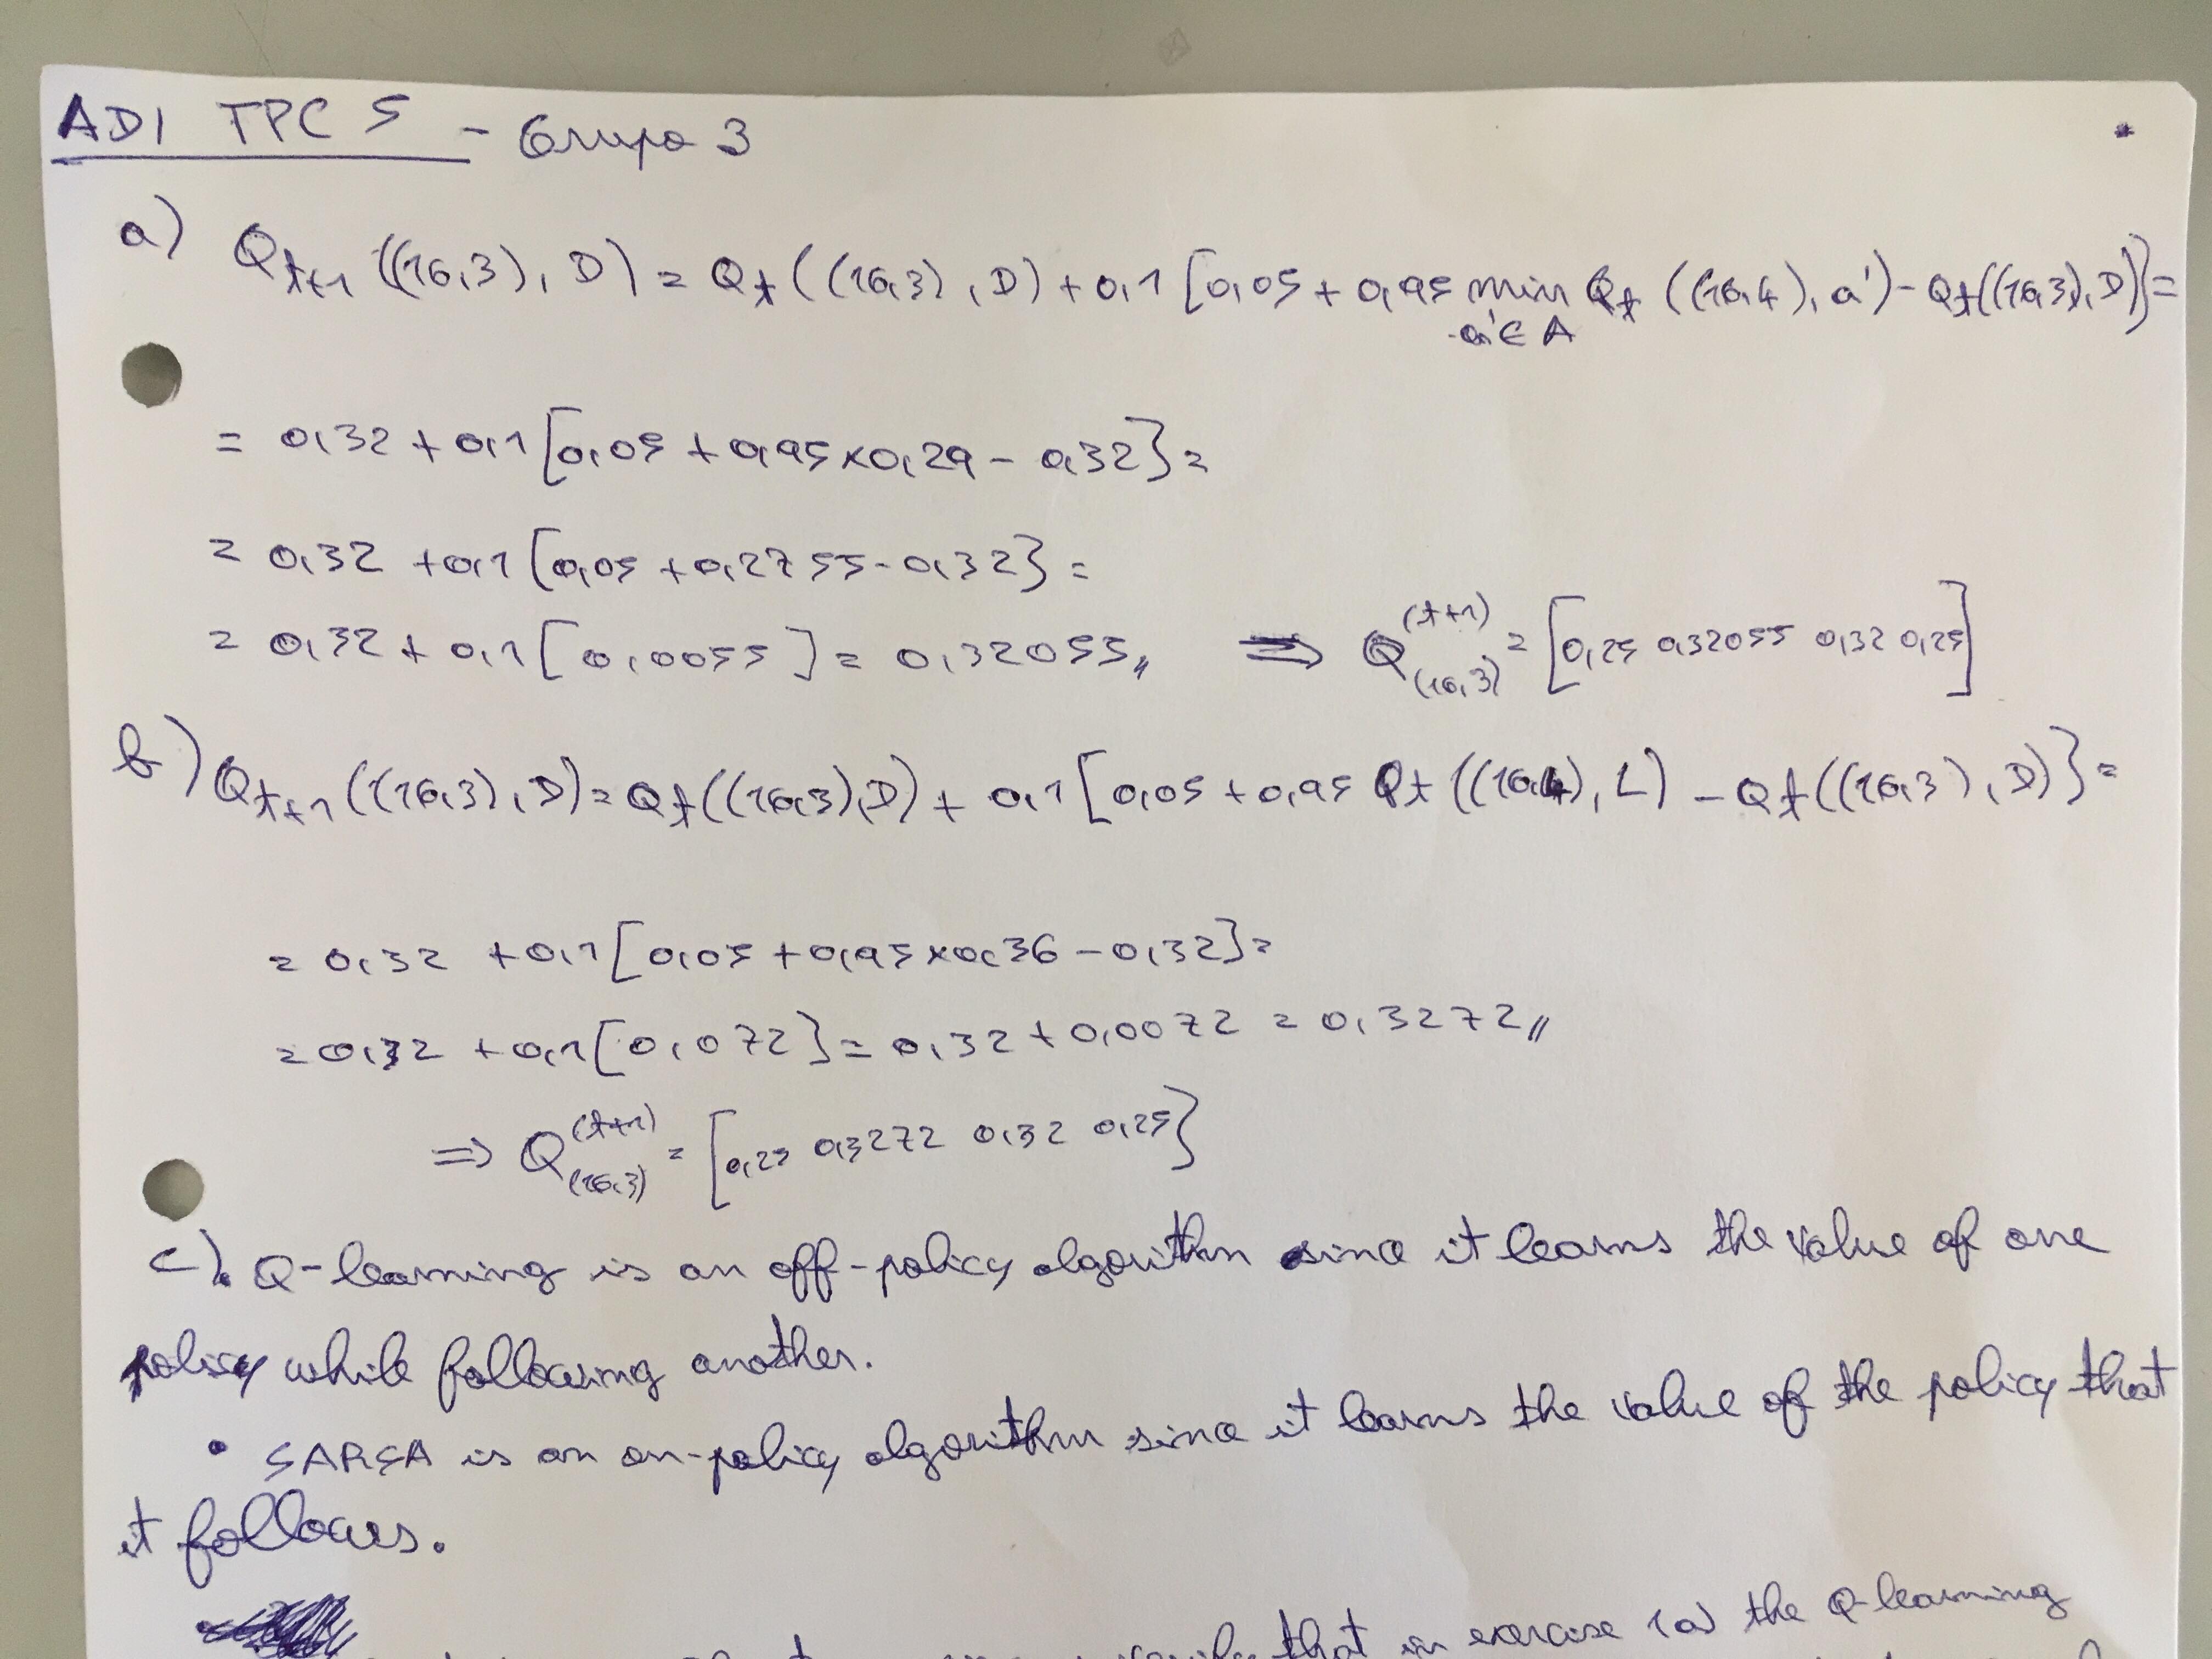 ADI TPC 5 - Grupo 3
a) Q_{t+1}((16,3), D) = Q_t((16,3), D) + 0,1 [0,05 + 0,95 min_{a'∈A} Q_t((16,4), a') - Q_t((16,3), D)] =
= 0,32 + 0,1 [0,05 + 0,95 × 0,29 - 0,32] =
= 0,32 + 0,1 [0,05 + 0,2755 - 0,32] =
= 0,32 + 0,1 [0,0055] = 0,32055 // ⇒ Q_{(16,3)}^{(t+1)} = [0,25 0,32055 0,32 0,25]
b) Q_{t+1}((16,3), D) = Q_t((16,3), D) + 0,1 [0,05 + 0,95 Q_t((16,4), L) - Q_t((16,3), D)] =
= 0,32 + 0,1 [0,05 + 0,95 × 0,36 - 0,32] =
= 0,32 + 0,1 [0,072] = 0,32 + 0,0072 = 0,3272 //
⇒ Q_{(16,3)}^{(t+1)} = [0,25 0,3272 0,32 0,25]
c) • Q-learning is an off-policy algorithm since it learns the value of one
policy while following another.
• SARSA is an on-policy algorithm since it learns the value of the policy that
it follows.
that in exercise (a) the Q-learning